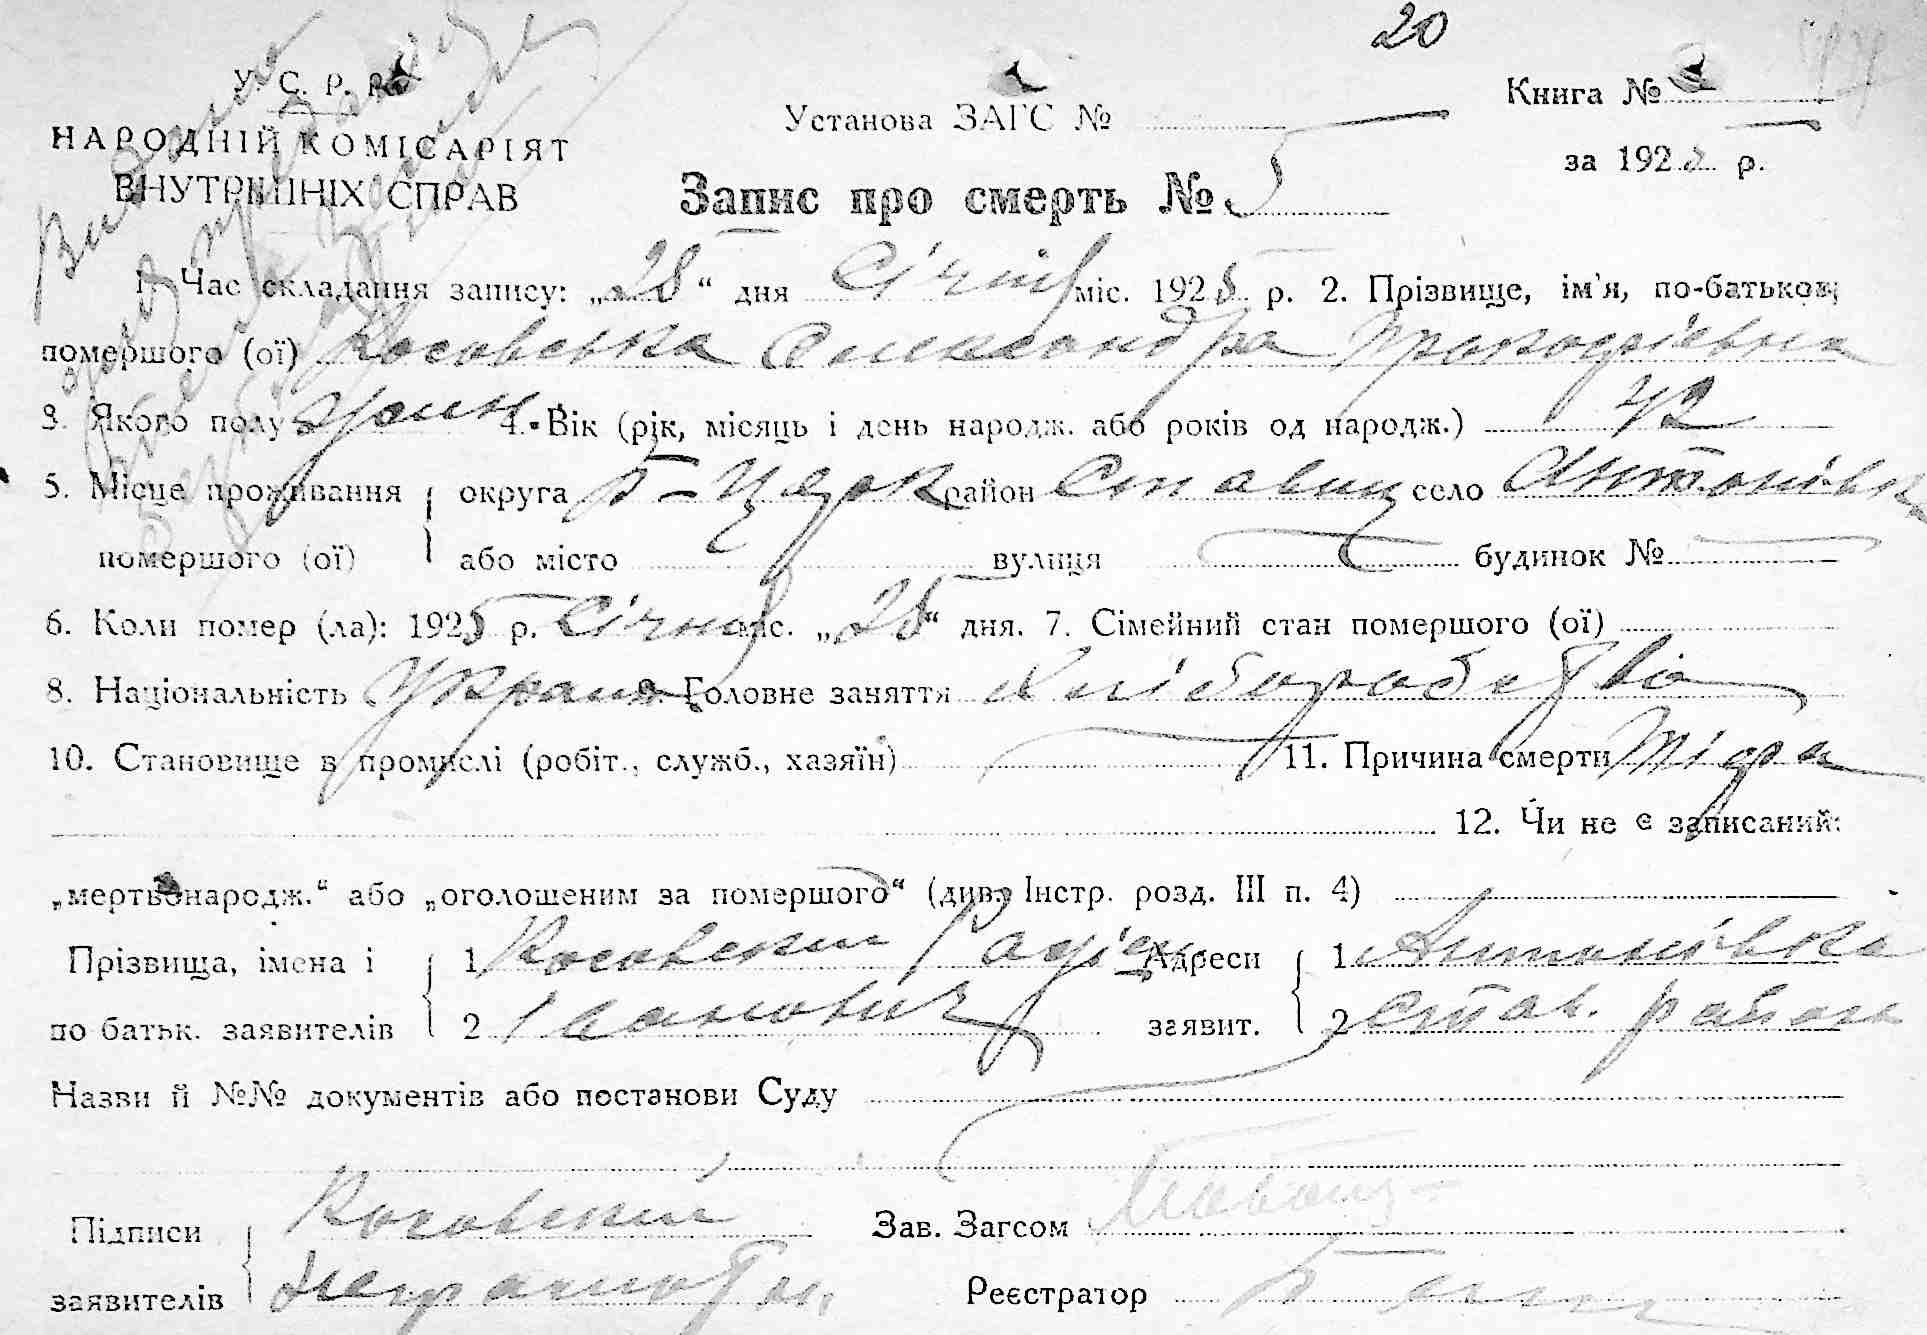 20
У. С. Р. Р.
НАРОДНІЙ КОМІСАРІЯТ
ВНУТРІШНІХ СПРАВ
Установа ЗАГС №
Книга №
за 192 р.
Запис про смерть № 5
1. Час складання запису: „28“ дня Січня міс. 1925 р. 2. Прізвище, ім'я, по-батькові
помершого (ої) Косовська Олександра Прокофієвна
3. Якого полу Жин. 4. Вік (рік, місяць і день народж. або років од народж.) 42
5. Місце проживання округа Б-Церк район Ставищ село Антонівка
помершого (ої) або місто вулиця будинок №
6. Коли помер (ла): 1925 р. Січня міс. „25“ дня. 7. Сімейний стан помершого (ої)
8. Національність Україн 9. Головне заняття Хліборобство
10. Становище в промислі (робіт., служб., хазяїн) 11. Причина смерти Тіфа
12. Чи не є записаний:
„мертвонародж.“ або „оголошеним за помершого“ (див. Інстр. розд. III п. 4)
Прізвища, імена і 1 Косовский Адреси 1 Антонівка
по батьк. заявителів 2 Іванович заявит. 2 Став. район
Назви й №№ документів або постанови Суду
Підписи Косовский Зав. Загсом
заявителів Неграмотни Реєстратор